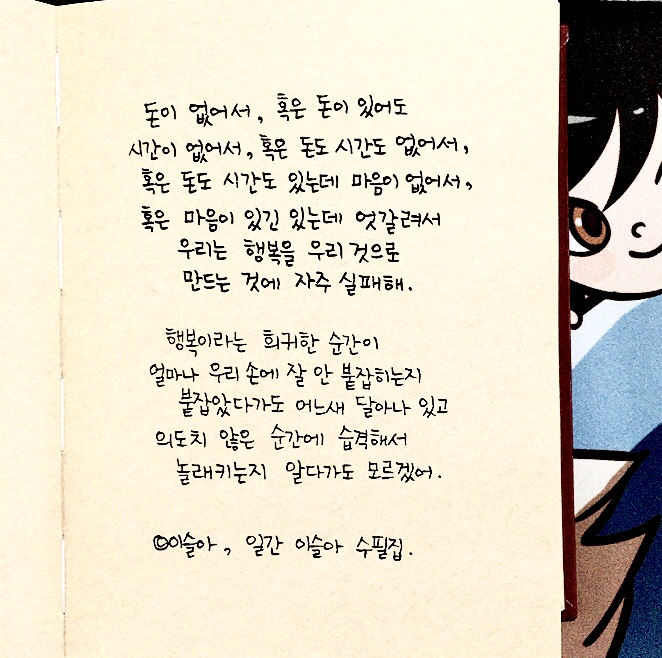 돈이 없어서, 혹은 돈이 있어도
시간이 없어서, 혹은 돈도 시간도 없어서,
혹은 돈도 시간도 있는데 마음이 없어서,
혹은 마음이 있긴 있는데 엇갈려서
우리는 행복을 우리 것으로
만드는 것에 자주 실패해.
행복이라는 희귀한 순간이
얼마나 우리 손에 잘 안 붙잡히는지
붙잡았다가도 어느새 달아나 있고
의도치 않은 순간에 습격해서
놀래키는지 알다가도 모르겠어.
©이슬아, 일간 이슬아 수필집.